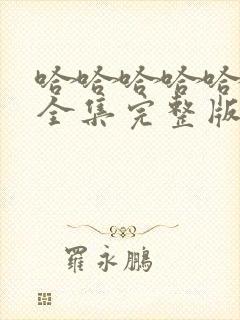 哈哈哈哈哈
全集完整版
羅永鵬